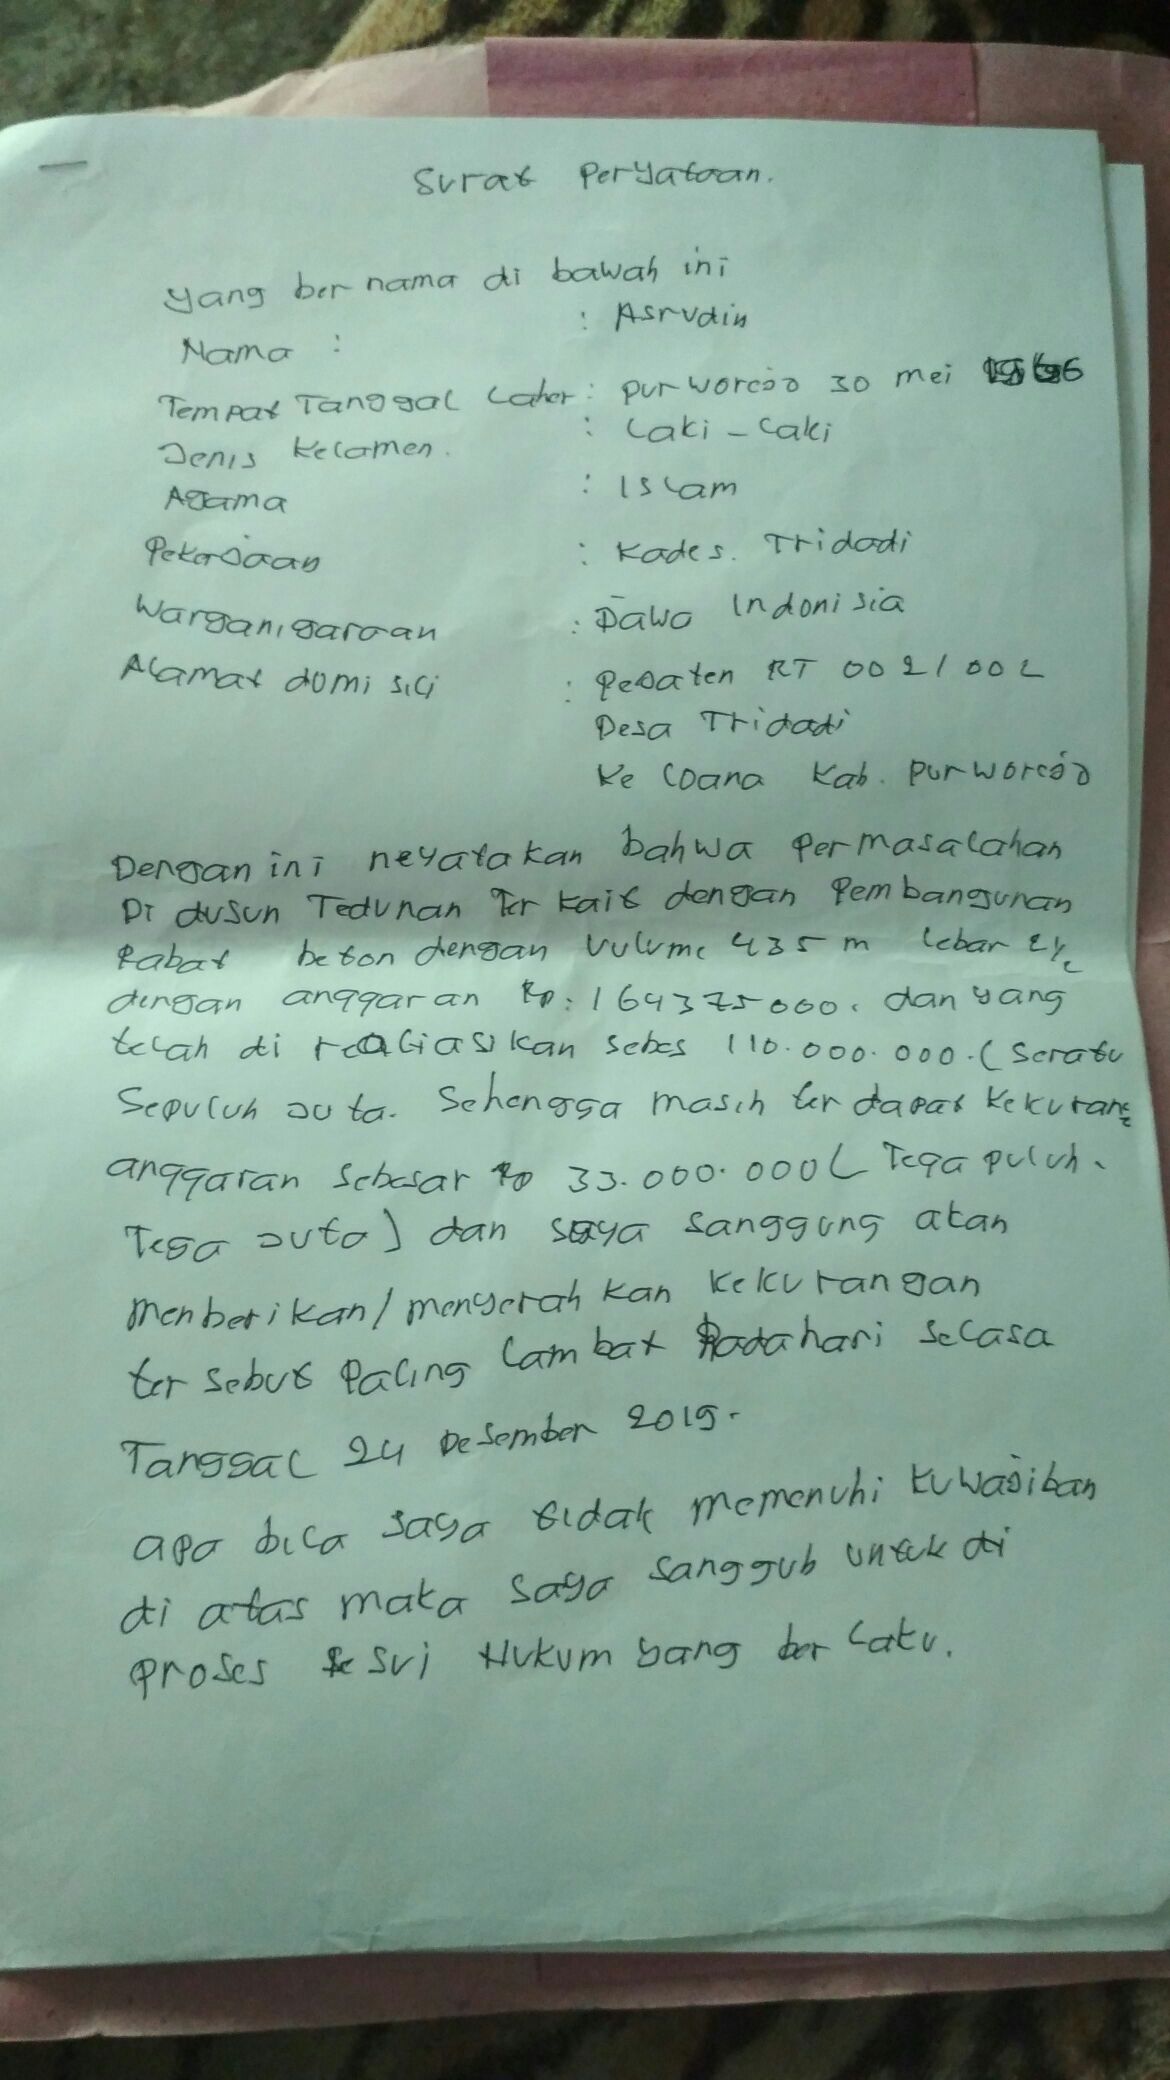 Surat Peryataan.
Yang ber nama di bawah ini
Nama : : Asrudin
Tempat Tanggal Laher : purworejo 30 mei
Jenis Kelamen. : Laki - Laki
Agama : Islam
Pekerjaan : Kades. Tridadi
Warganigaraan : Jawa Indonisia
Alamat domisili : Pejaten RT 002/002
Desa Tridadi
Ke Loana Kab. purworejo
Dengan ini neyatakan bahwa permasalahan
Di dusun Tedunan Ter kait dengan Pembangunan
Rabat beton dengan Vulume 435 m lebar 2 1/2
dengan anggaran Rp: 164375000. dan yang
telah di realiasikan sebes 110.000.000.( Seratu
Sepuluh Juta. Sehengga masih ter dapat kekurang
anggaran sebesar Rp 33.000.000 ( Tega puluh.
Tega Juta) dan saya sanggung akan
menberikan/menyerahkan kekurangan
ter sebut paling Lambat Pada hari selasa
Tanggal 24 Desember 2019.
apa bila saya tidak memenuhi kuwajiban
di atas maka saya sanggub untuk di
proses se sui Hukum yang ber laku.